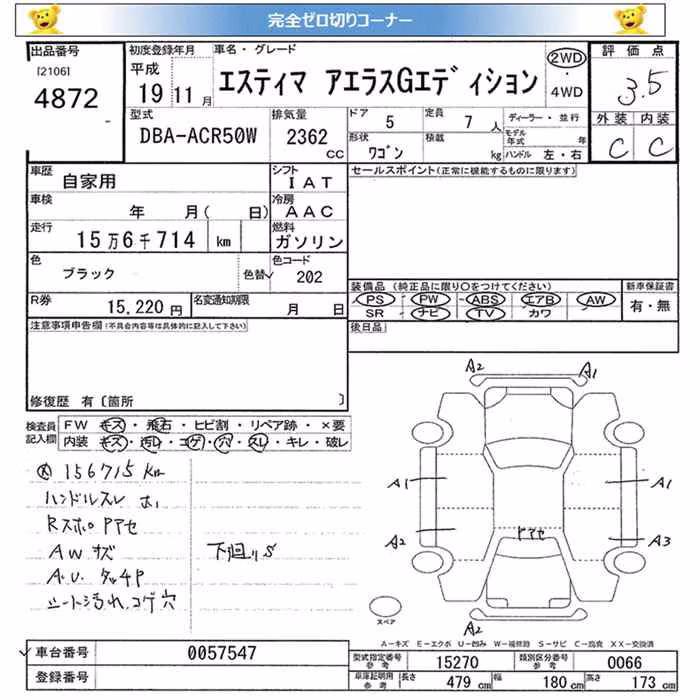 完全ゼロ切りコーナー
出品番号
[2106]
4872
初度登録年月
平成
19 11月
車名・グレード
エスティマ アエラスGエディション
2WD
・
4WD
評価点
3.5
外装 内装
C C
型式
DBA-ACR50W
排気量
2362
CC
ドア 5
定員 7人
形状 ワゴン
積載 kg
ディーラー・並行
モデル年式 年
ハンドル 左・右
車歴 自家用
シフト IAT
車検 年 月( 日)
冷房 AAC
走行 15万6千714 km
燃料 ガソリン
色 ブラック 色替
色コード 202
R券 15,220円
名変通知期限 月 日
セールスポイント(正常に機能するものに限ります)
装備品 (純正品に限り○をつけてください)
PS・PW・ABS・エアB・AW
SR ナビ・TV・カワ
新車保証書
有・無
後日品
注意事項申告欄(不具合内容等は具体的に記入して下さい)
修復歴 有〔箇所 〕
検査員記入欄
FW キズ・飛石・ヒビ割・リペア跡・×要
内装 キズ・汚れ・コゲ・穴・スレ・キレ・破レ
156715km
ハンドルスレ 小
Rスポロ Pアセ
AW キズ
A.U. タッチP
シート汚れ、コゲ穴
下廻りS
A2 A1
A1 A1
A2 A3
Pアセ
A2
スペア
A−キズ E−エクボ U−凹み W−補修跡 S−サビ C−腐食 XX−交換済
車台番号 0057547
登録番号
型式指定番号 参考 15270
類別区分番号 参考 0066
車庫証明書 参考 長さ 479cm 幅 180cm 高さ 173cm